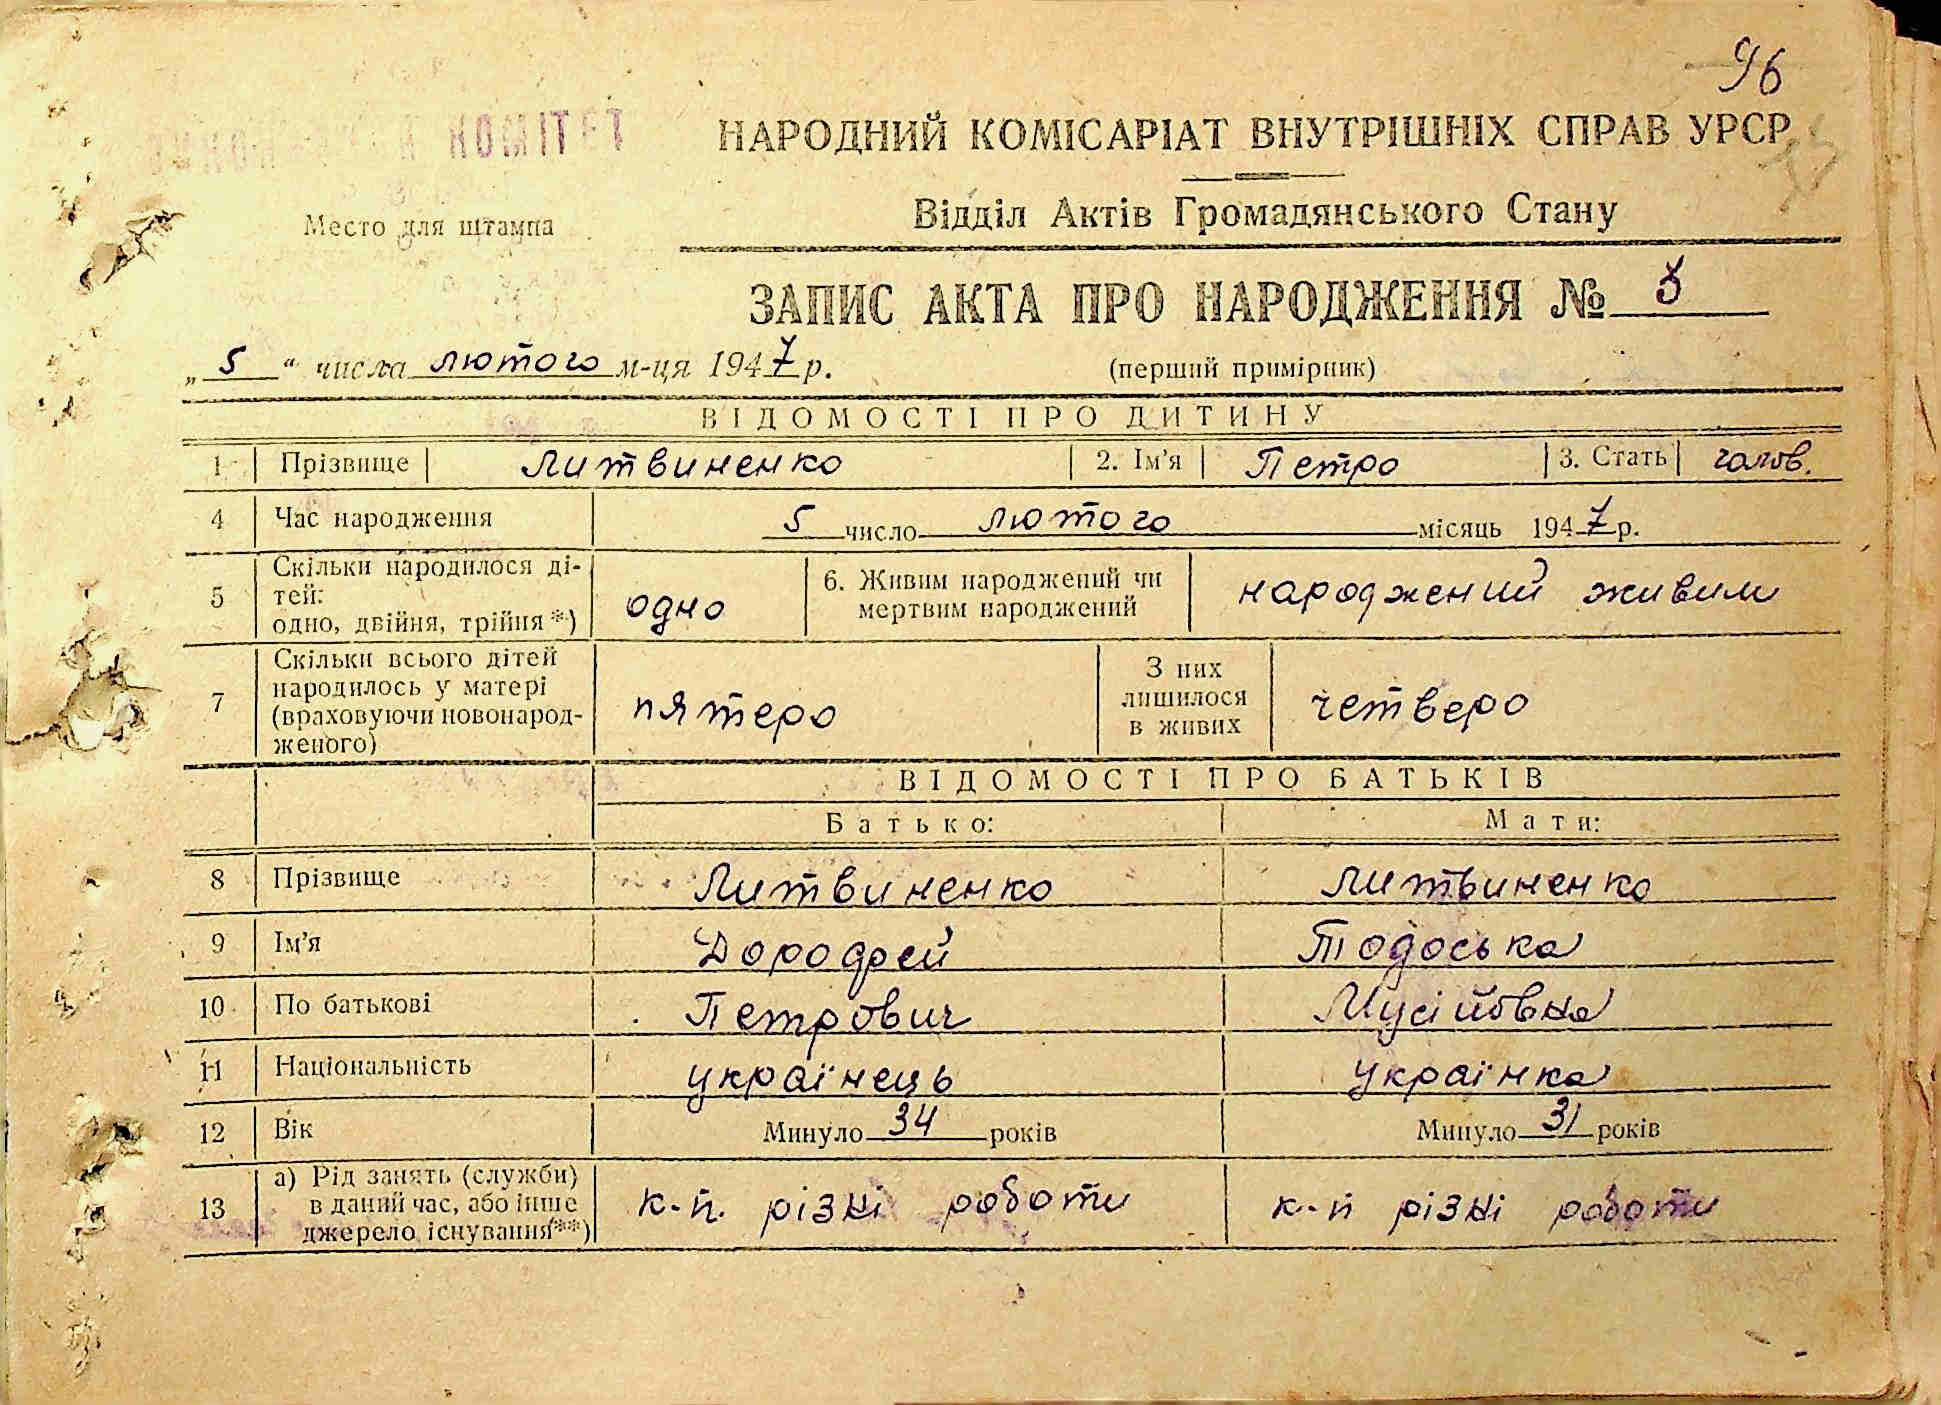 96
НАРОДНИЙ КОМІСАРІАТ ВНУТРІШНІХ СПРАВ УРСР
Відділ Актів Громадянського Стану
Место для штампа
ЗАПИС АКТА ПРО НАРОДЖЕННЯ №
„ 5 “ числа лютого м-ця 1947 р.
(перший примірник)
ВІДОМОСТІ ПРО ДИТИНУ
1 Прізвище Литвиненко 2. Ім'я Петро 3. Стать чолов.
4 Час народження 5 число лютого місяць 1947 р.
5 Скільки народилося ді-
тей:
одно, двійня, трійня *) одно
6. Живим народжений чи
мертвим народжений народжений живим
7 Скільки всього дітей
народилось у матері
(враховуючи новонарод-
женого) пятеро
З них
лишилося
в живих четверо
ВІДОМОСТІ ПРО БАТЬКІВ
Батько: Мати:
8 Прізвище Литвиненко Литвиненко
9 Ім'я Дородфей Тодоська
10 По батькові Петрович Мусійовна
11 Національність українець українка
12 Вік Минуло 34 років Минуло 31 років
13 а) Рід занять (служби)
в даний час, або інше
джерело існування **) к-п. різні роботи к-п різні роботи